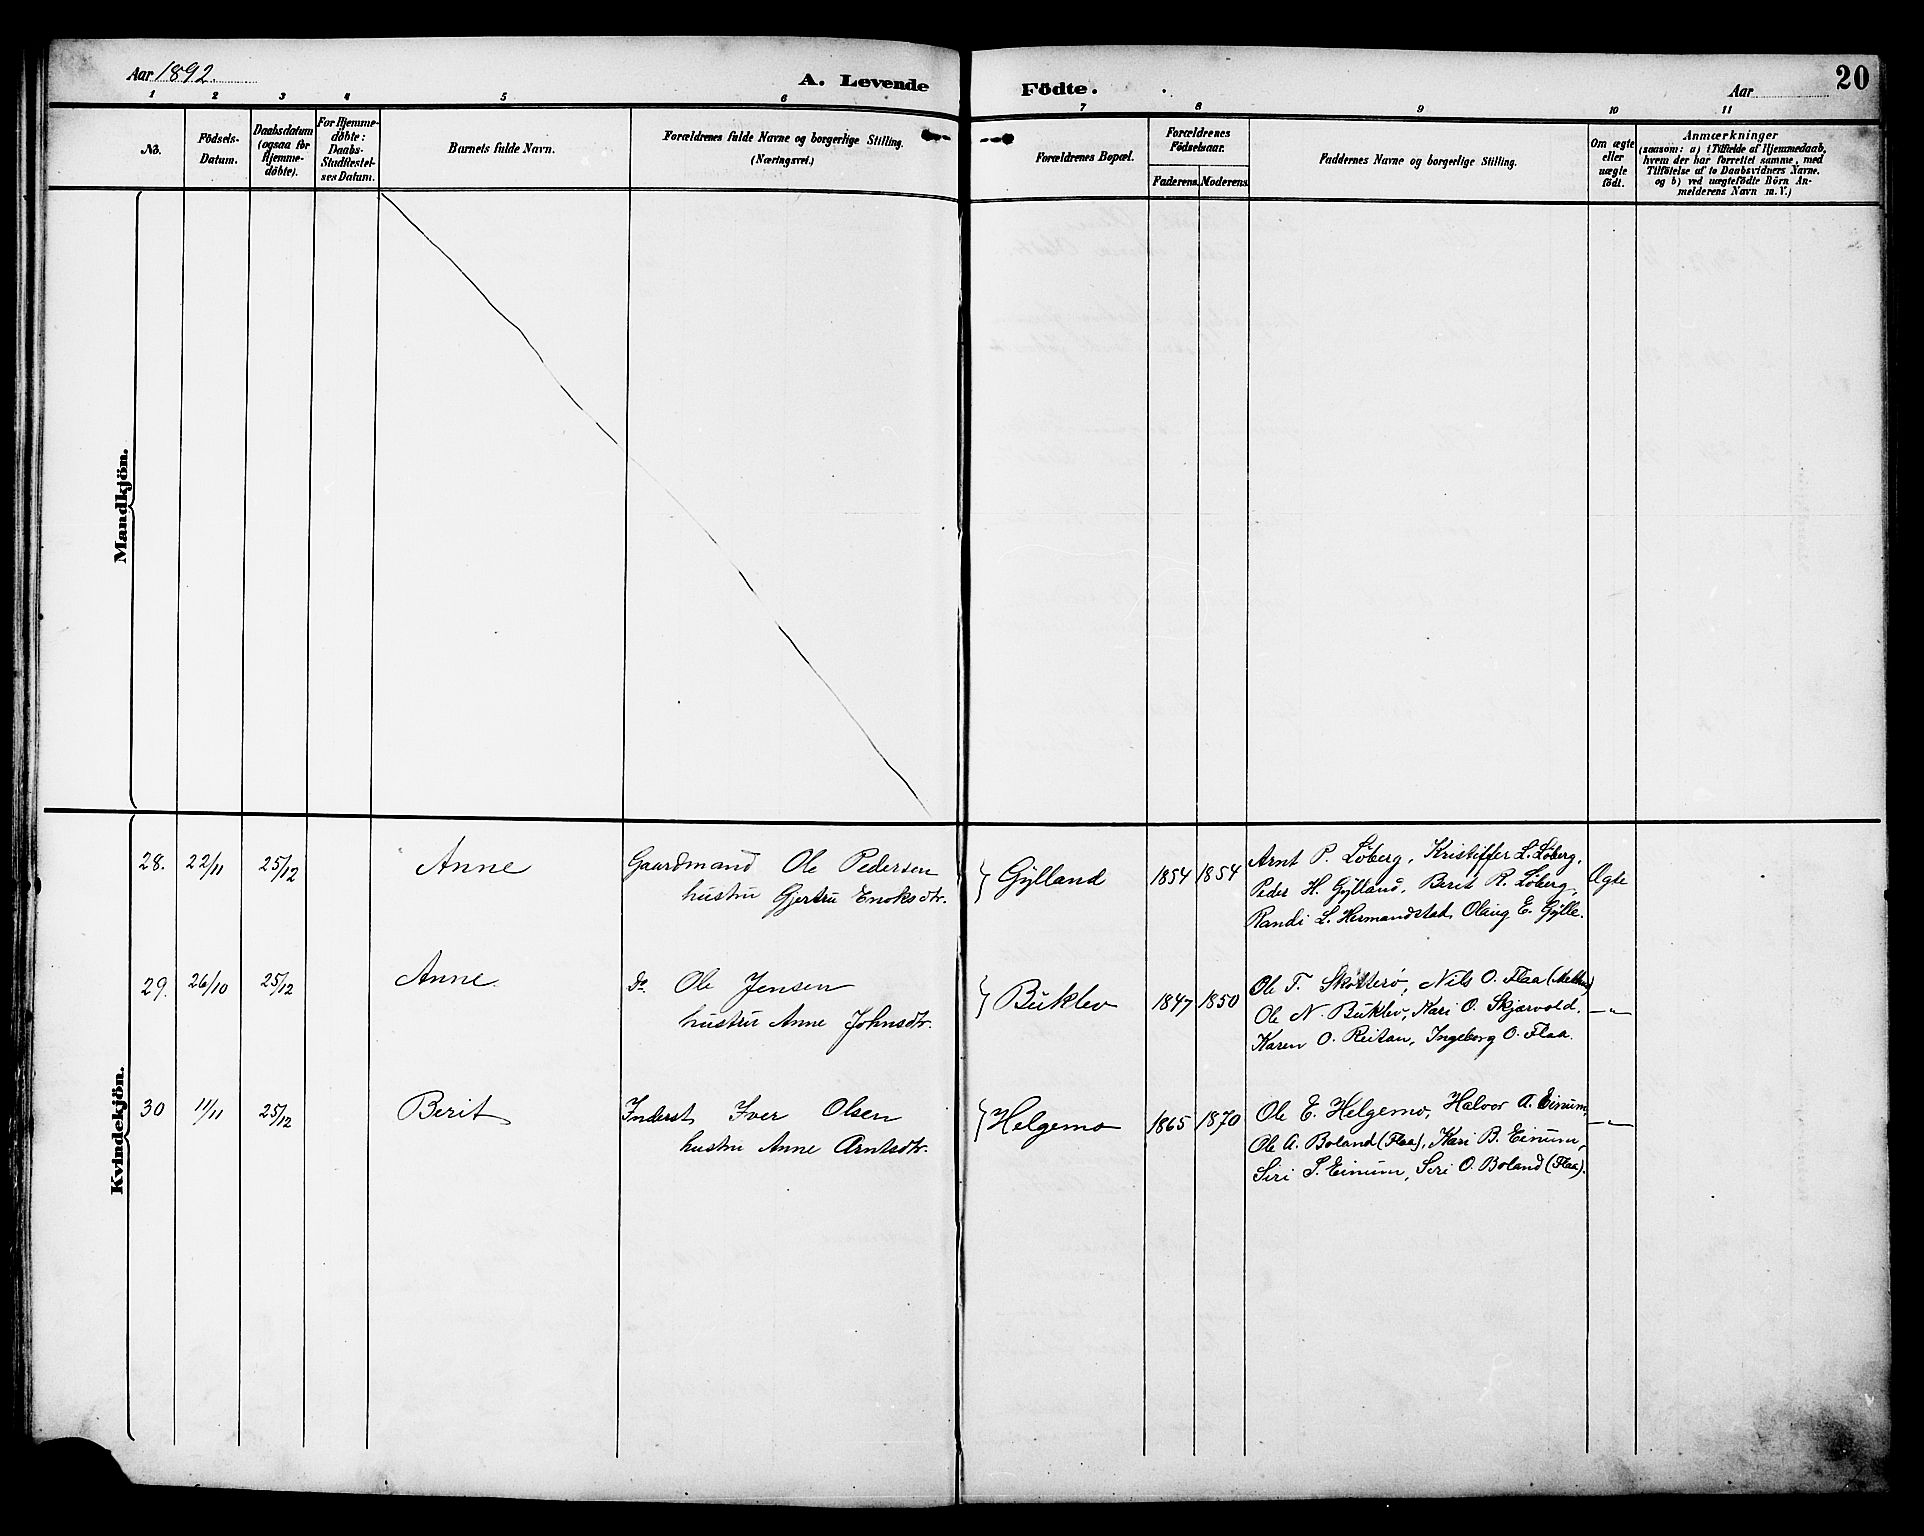 Aar 1892.
A. Levende Födte.
Aar
20
1 2 3 4 5 6 7 8 9 10 11
No.
Födsels-
Datum.
Daabsdatum
(ogsaa for
Hjemme-
döbte).
For Hjemme-
döbte:
Daabs-
Stadfæstel-
ses Datum.
Barnets fulde Navn.
Forældrenes fulde Navne og borgerlige Stilling.
(Næringsvei.)
Forældrenes Bopæl.
Forældrenes
Födselsaar.
Faderens. Moderens.
Faddernes Navne og borgerlige Stilling.
Om ægte
eller
uægte
födt.
Anmærkninger
(saasom: a) i Tilfælde af Hjemmedaab,
hvem der har forrettet samme, med
Tilföielse af to Daabsvidners Navne.
og b) ved uægtefödte Börn An-
melderens Navn m. V.)
Mandkjön.
Kvindekjön.
28. 22/11 25/12 Anne Gaardmand Ole Pedersen
hustru Gjertru Enoksdtr.
Gylland 1854 1854
Arnt P. Løberg, Kristiffer L. Løberg,
Peder H. Gylland, Berit R. Løberg,
Randi L. Hermandstad, Olaug E. Gylle.
Ægte
29. 26/10 25/12 Anne Do. Ole Jensen
hustru Anne Johnsdtr.
Buklev 1847 1850
Ole T. Skotterø, Nils O. Flaa (Melhus)
Ole N. Buklev, Kari O. Skjærvold.
Karen O. Reitan, Ingeborg O. Flaa.
—"—
30 11/11 25/12 Berit Inderst Iver Olsen
hustru Anne Arntsdtr.
Helgemo 1865 1870
Ole E. Helgemo, Halvor A. Einum,
Ole A. Boland (Flaa), Kari B. Einum,
Siri I. Einum, Siri O. Boland (Flaa).
—"—